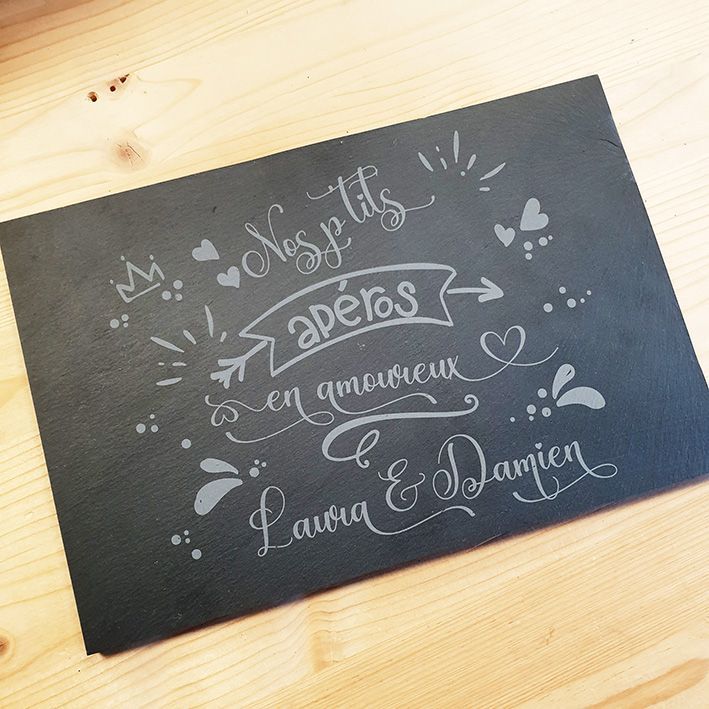 Nos p'tits
apéros
en amoureux
Laura & Damien